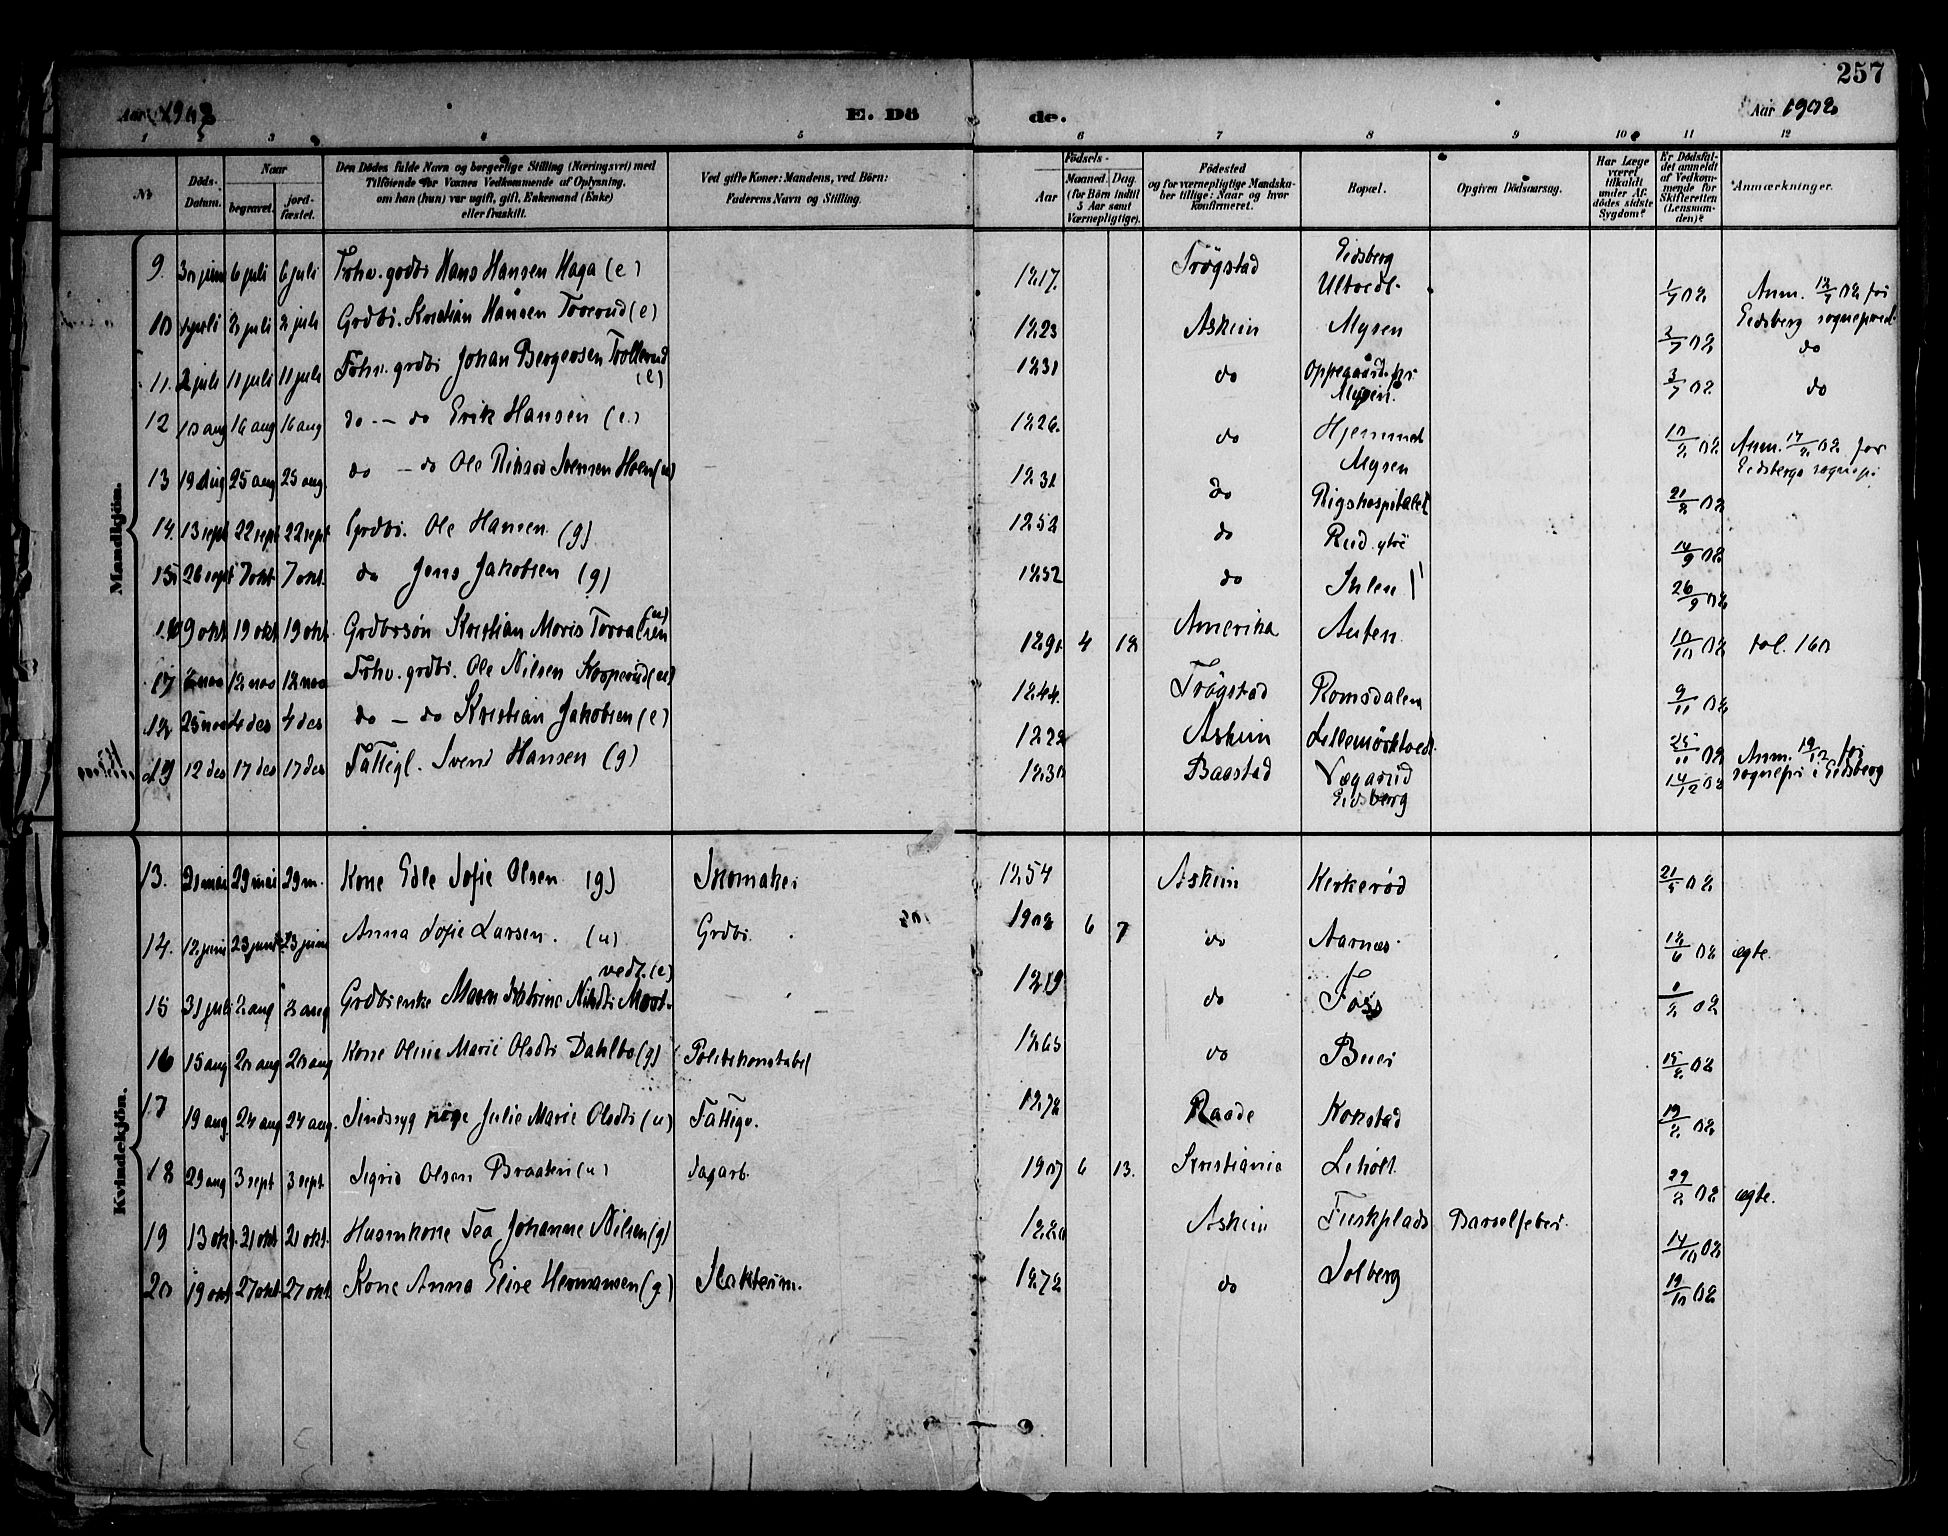 257
Aar 1902 E. Dö de. Aar 1902
1 2 3 4 5 6 7 8 9 10 11 12
№ Döds-Datum. Naar begravet. jordfæstet. Den Dödes fulde Navn og borgerlige Stilling (Næringsvei) med Tilföiende for Voxnes Vedkommende af Oplysning, om han (hun) var ugift, gift, Enkemand (Enke) eller fraskilt. Ved gifte Koner: Mandens, ved Börn: Faderens Navn og Stilling. Födsels- Aar Maaned. Dag. (for Börn indtil 5 Aar samt Værnepligtige). Födested og for værnepligtige Mandskaber tillige: Naar og hvor konfirmeret. Bopæl. Opgiven Dödsaarsag. Har Læge været tilkaldt under Afdödes sidste Sygdom? Er Dödsfaldet anmeldt af Vedkommende for Skifteretten (Lensmanden)? Anmærkninger.
Mandkjön.
9. 30 juni 6 juli 6 juli Fohv. grdbr Hans Hansen Haga (e) 1817. Trögstad Eidsberg Ultvedt. 1/7 02 Anm. 12/7 02 for Eidsberg sognepred
10 1 juli 2 juli 2 juli Grdbr. Kristian Hansen Toverud (e) 1823 Askim Mysen 2/7 02 do
11. 2 juli 11 juli 11 juli Fohv. grdbr Johan Bergersen Trollerud (e) 1831 do Oppegaard pr Mysen. 3/7 02 do
12 10 aug 16 aug 16 aug do - do Erik Hansen (e.) 1826. do Hjemmet Mysen 10/8 02 Anm. 17/8 02 for Eidsbergs sognepr
13 19 Aug 25 aug 25 aug do - do Ole Rikard Svensen Hoen (u) 1831 do Rigshospitalet 21/8 02
14. 13 sept 22 sept 22 sept Grdbr. Ole Hansen (g) 1852 do Rud ytre 14/9 02
15 26 sept 7 okt. 7 okt. do Jens Jakobsen (g) 1852 do Ihlen 26/9 02
16 9 okt 19 okt 19 okt. Grdbrsön Kristian Moris Torvalsen (u) 1891 4 18 Amerika Auten 10/10 02 fol. 160
17 8 nov 12 nov 12 nov Fohv. grdbr. Ole Nilsen Korperud (u) 1844. Trögstad Romsdalen 9/11 02
18 25 nov 4 des 4 des do - do Kristian Jakobsen (e) 1828 Askim Lillemörktvedt. 25/11 02
19 12 des 17 des 17 des Fattigl. Svend Hansen (g) 1830 Baastad Vegarud Eidsberg 14/12 02 Anm. 19/12 for sognepr i Eidsberg
Kvindekjön.
13. 20 mai 29 mai 29 m. Kone Edle Sofie Olsen (g) Skomaker 1854 Askim Kirkeröd 21/5 02
14. 12 juni 23 juni 23 juni Anna Sofie Larsen. (u) Grdbr. 1902 6 7 do Aarnes. 18/6 02 ægte.
15 31 juli 2 aug 2 aug Grdbrenke Maren Katrine Nilsdtr Mørt- vedt. (e) 1819 do Foss 1/8 02
16 15 aug 20 aug 20 aug Kone Oline Marie Olsdtr Dahlbo (g) Politikonstabel 1865 do Buer 15/8 02
17 19 aug. 24 aug 24 aug. Sindssyg pige Julie Marie Olsdtr (u) Fattigv. 1872 Raade Konstad 19/8 02
18 29 aug 3 sept 3 sept Sigrid Olsen Braaten (u) Dagarb. 1901 6 13. Kristiania Liholt 29/8 02 ægte.
19 13 okt. 21 okt 21 okt. Husmkone Tea Johanne Nilsen (g) 1880 Askim Fuskplads Barselfeber. 14/10 02
20 19 okt 27 okt 27 okt. Kone Anna Elise Hermansen (g) Slakterim. 1872 do Solberg 19/10 02